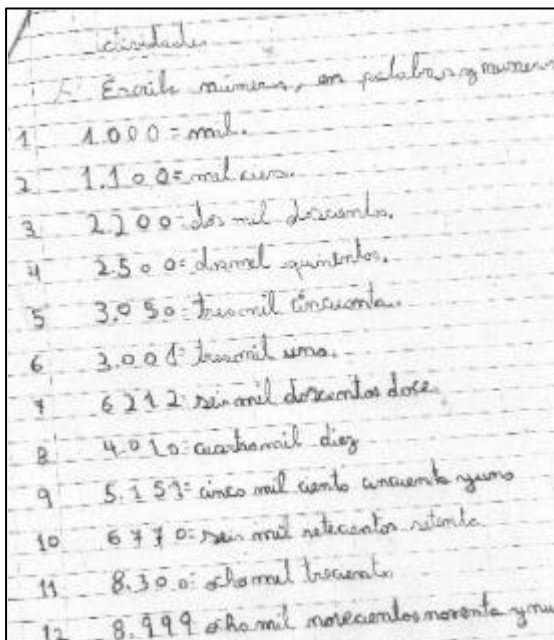 actividades
Escribe números, en palabras y numeros
1 1.000 = mil.
2 1.100 = mil cien.
3 2.200 = dos mil doscientos.
4 2.500 = dos mil quinientos.
5 3.050 = tres mil cincuenta.
6 3.001 = tres mil uno.
7 6212 = seis mil doscientos doce.
8 4.010 = cuatro mil diez
9 5.151 = cinco mil ciento cincuenta y uno
10 6770 = seis mil setecientos setenta
11 8.300 = ocho mil trecientos
12 8.999 ocho mil novecientos noventa y nu